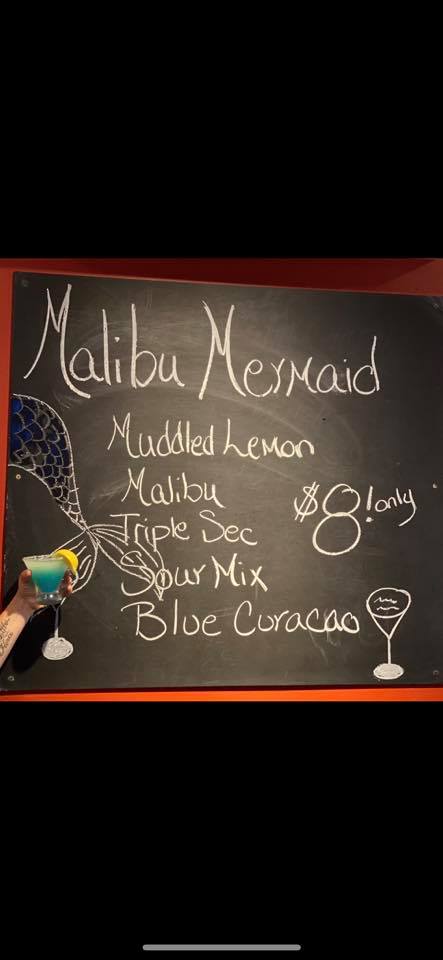 Malibu Mermaid
Muddled Lemon
Malibu
Triple Sec
Sour Mix
Blue Curacao
$8! only